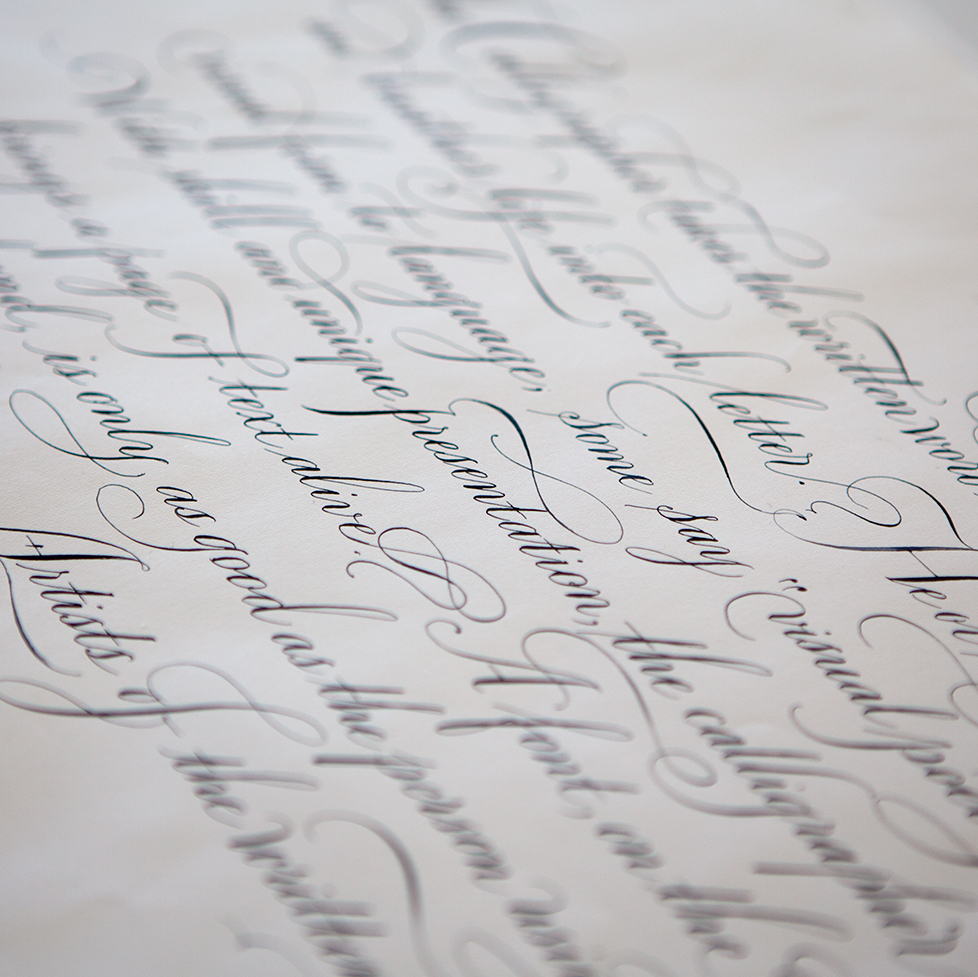 Calligrapher turns the written wor
breathes life into each letter. He or
form to language, some say "visual poe
With skill and unique presentation, the calligrapher
brings a page of text alive. A font, on the
is only as good as the person usin
Artists of the Written